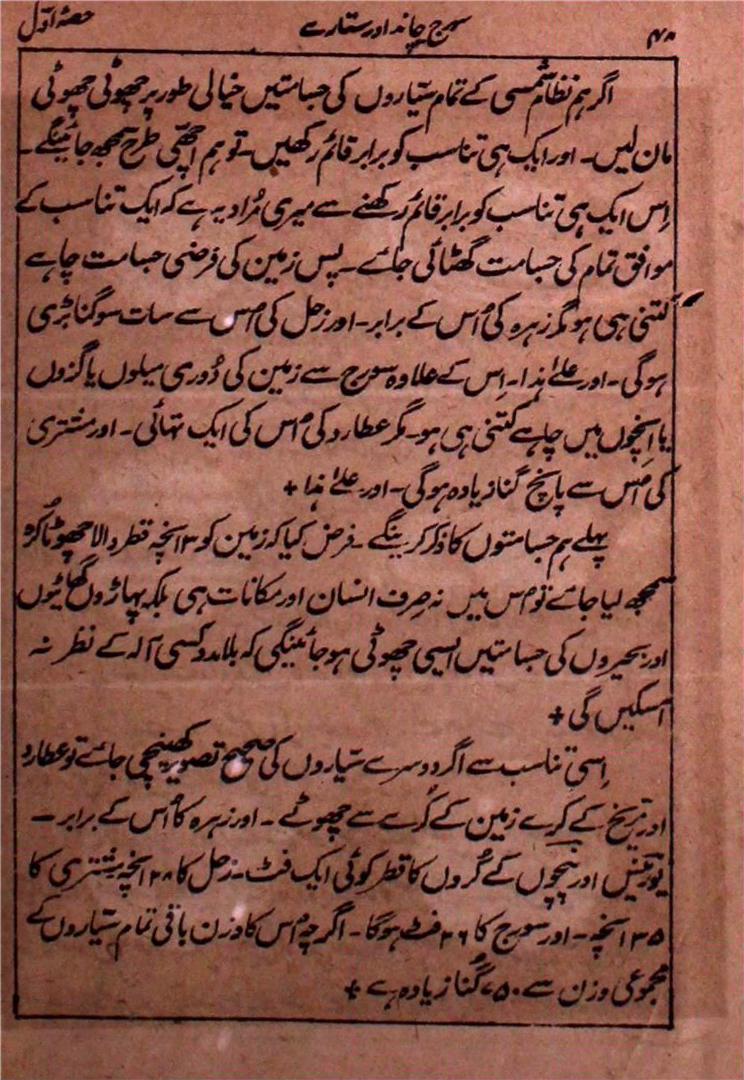 ۴۸ سورج چاند اور ستارے حصۂ اوّل
اگر ہم نظام شمسی کے تمام سیّاروں کی جسامتیں خیالی طور پر چھوٹی چھوٹی
مان لیں۔ اور ایک ہی تناسب کو برابر قائم رکھیں۔ تو ہم اچھّی طرح سمجھ جائینگے۔
اِس ایک ہی تناسب کو برابر قائم رکھنے سے میری مُراد یہ ہے کہ ایک تناسب کے
موافق تمام کی جسامت گھٹائی جائے۔ پس زمین کی فرضی جسامت چاہے
کتنی ہی ہو مگر زہرہ کی اُس کے برابر۔ اور زحل کی اُس سے سات سو گنا بڑی
ہوگی۔ اور علےٰ ہذا۔ اِس کے علاوہ سورج سے زمین کی دُوری میلوں یا گزوں
یا اِنچوں میں چاہے کتنی ہی ہو۔ مگر عطارد کی اُس کی ایک تہائی۔ اور مشتری
کی اُس سے پانچ گنا زیادہ ہوگی۔ اور علےٰ ہذا +
پہلے ہم جسامتوں کا ذکر کرینگے۔ فرض کیا کہ زمین کو ۳ اِنچہ قطر والا چھوٹا کُرّہ
سمجھ لیا جائے تو اُس میں نہ صِرف انسان اور مکانات ہی بلکہ پہاڑوں گھاٹیوں
اور بحیروں کی جسامتیں ایسی چھوٹی ہو جائینگی کہ بلا مدد کسی آلہ کے نظر نہ
آسکیں گی +
اِسی تناسب سے اگر دوسرے سیّاروں کی صحیح تصویر کھینچی جائے تو عطارد
اور مریخ کے کُرے زمین کے کُرے سے چھوٹے۔ اور زہرہ کا اُس کے برابر۔
یورینس اور نپچوں کے کُروں کا قطر کوئی ایک فٹ۔ زحل کا ۲۸ اِنچہ مشتری کا
۳۵ اِنچہ۔ اور سورج کا ۲۶ فٹ ہوگا۔ اگرچہ اُس کا وزن باقی تمام سیّاروں کے
مجموعی وزن سے ۷۵۰ گُنا زیادہ ہے +